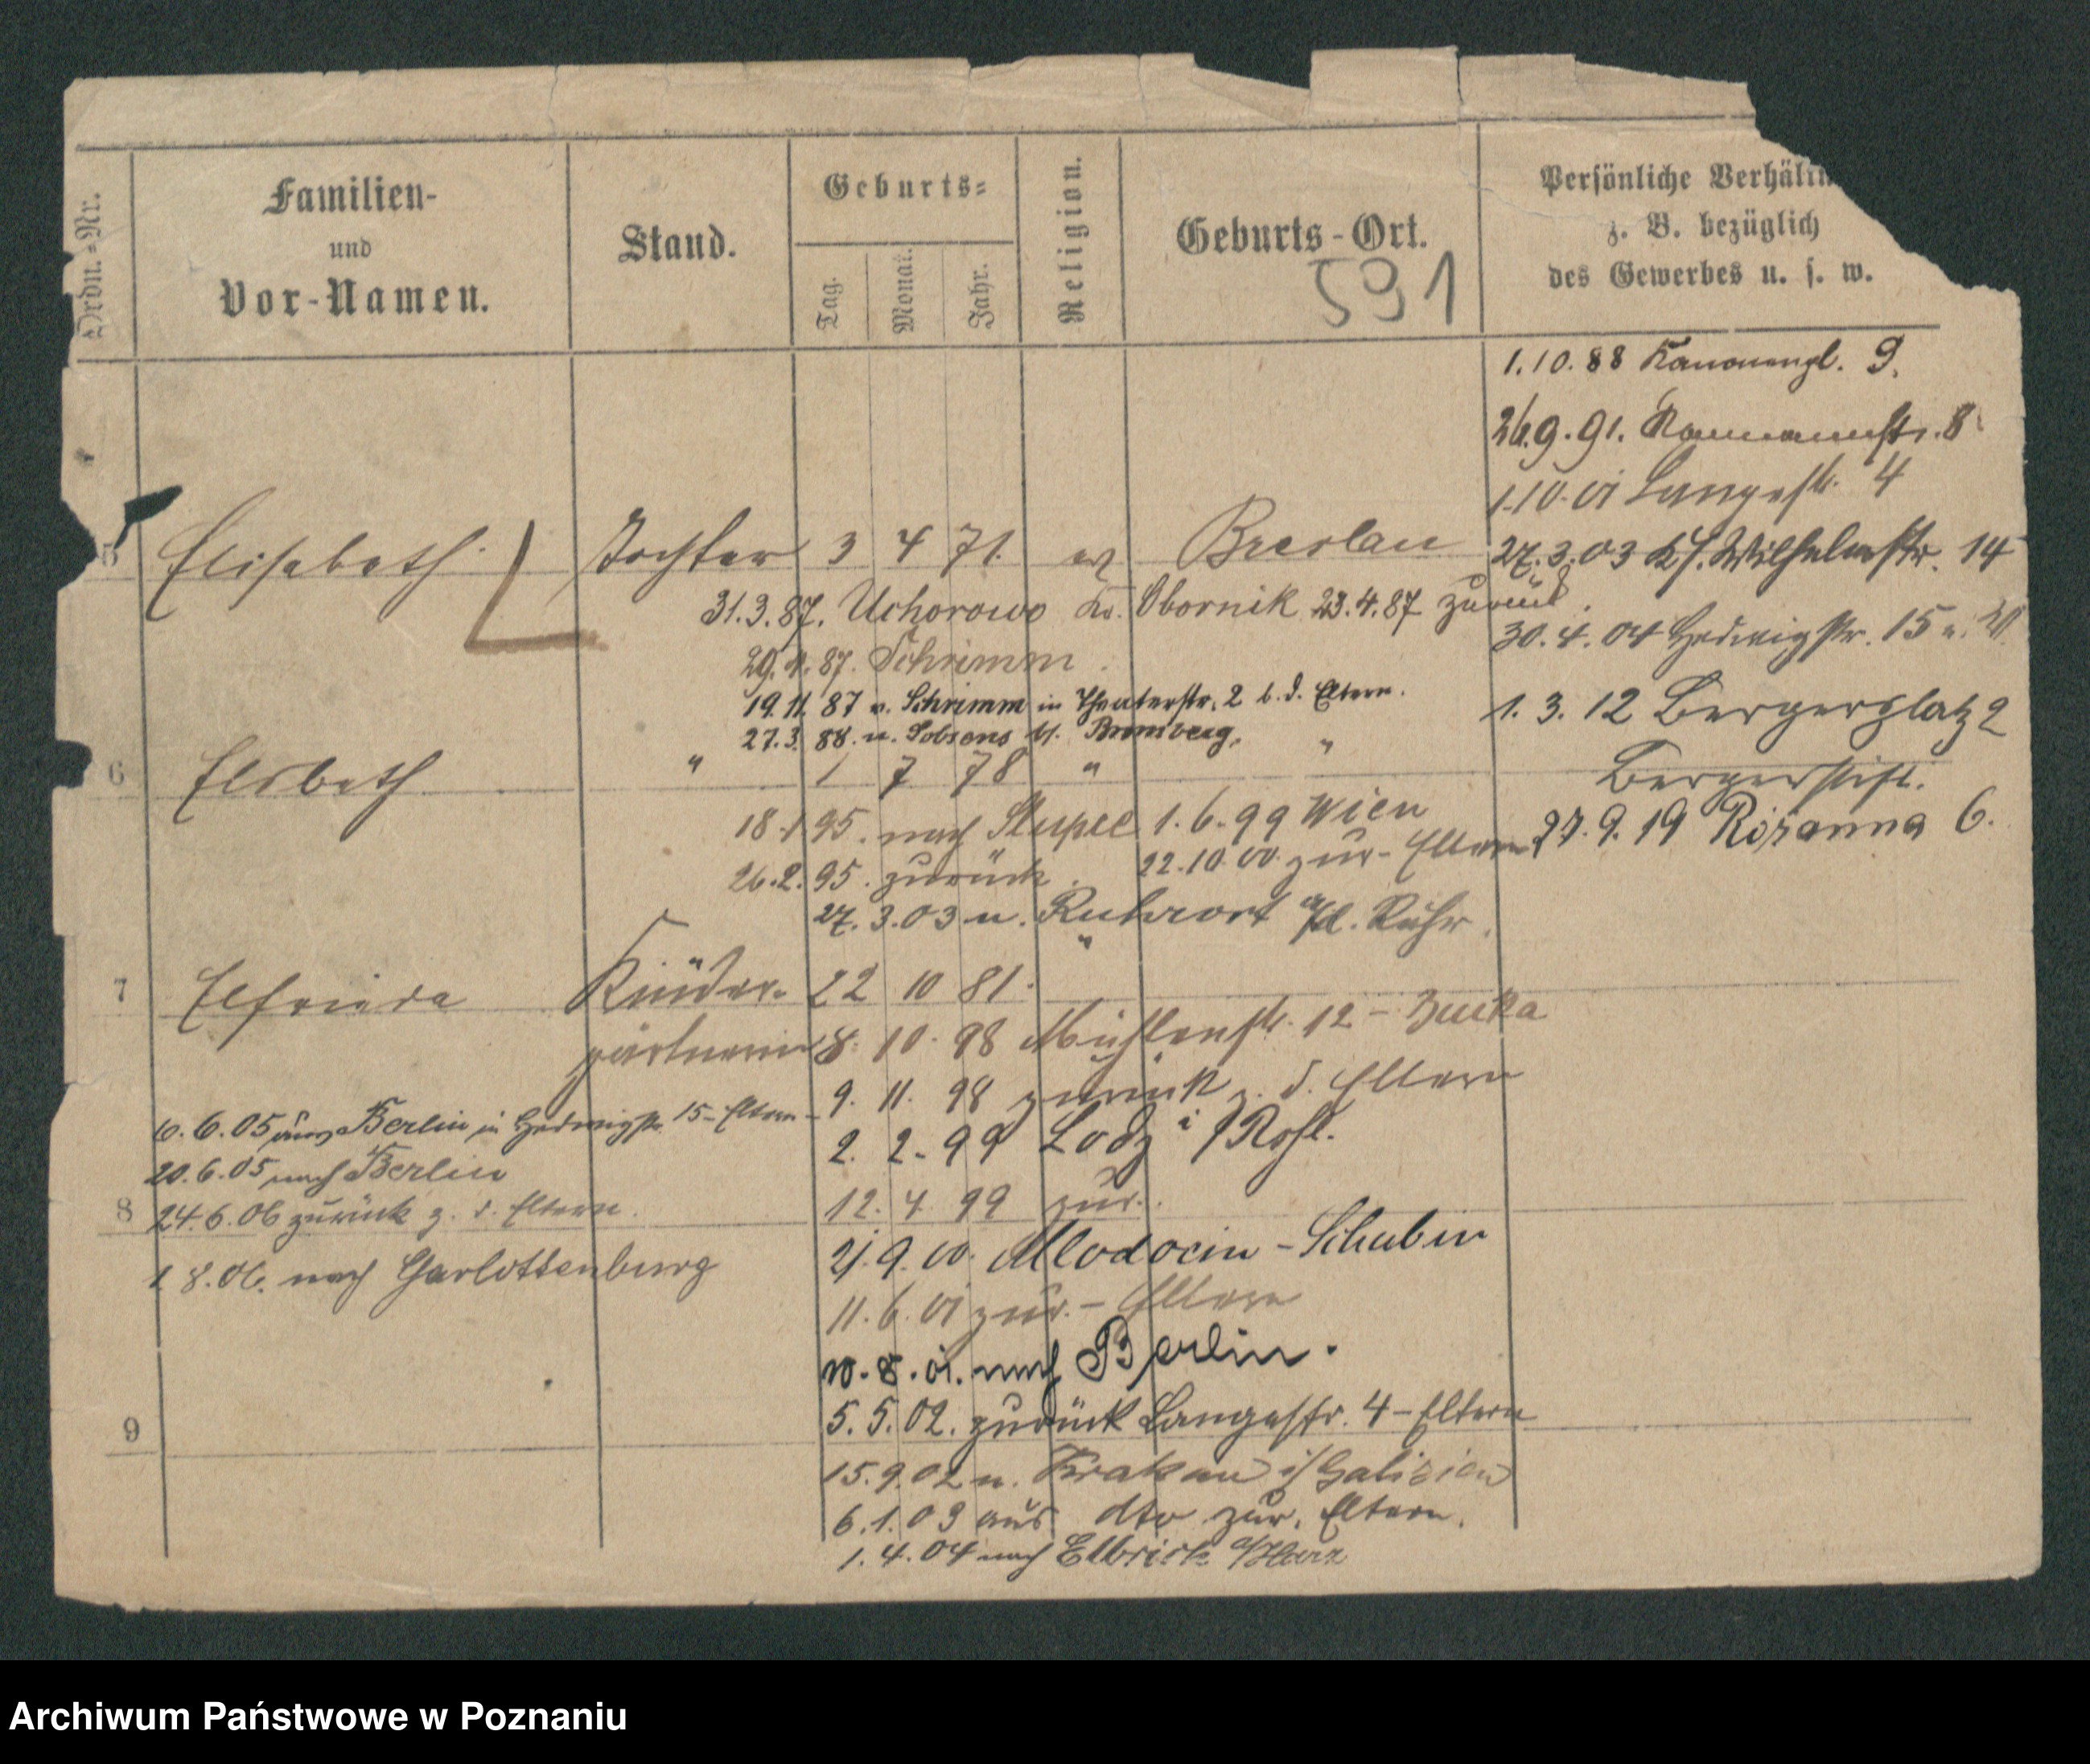 Ordn.-Nr.
Familien-
und
Vor-Namen.
Stand.
Geburts-
Tag.
Monat.
Jahr.
Religion.
Geburts-Ort.
591
Persönliche Verhältn
z. B. bezüglich
des Gewerbes u. s. w.
1.10.88 Kanonenpl. 9.
26.9.91. Naumannstr. 8
1.10.01 Langestr. 4
27.3.03 Ks. Wilhelmstr. 14
30.4.04 Hedwigstr. 15
1.3.12 Bergerplatz 2
Bergerstift.
27.9.19 Różanna 6.
5 Elisabeth Tochter 3 4 71. ev Breslau
31.3.87. Uchorowo Kr. Obornik 23.4.87 zurück.
29.4.87. Schrimm.
19.11.87 v. Schrimm in Theaterstr. 2 b. d. Eltern.
27.3.88. n. Lobsens bz. Bromberg.
6 Elsbeth " 1 7 78 " "
18.1.95. nach Slupce 1.6.99 Wien
26.2.95. zurück. 22.10.00. zur. Eltern
27.3.03 n. Ruhrort a/d. Ruhr.
7 Elfriede Kinder- 22 10 81. "
gärtnerin 8. 10. 98 Mühlenstr. 12 -
9. 11. 98 zurück z. d. Eltern
2. 2. 99 Lodz i/Rßl.
12. 4. 99 zur.
21.9.00. Mlodocin - Schubin
11.6.01 zur. - Eltern
10.8.01. nach Berlin.
5.5.02. zurück Langestr. 4 - Eltern
15.9.02 n. Krakau i/Galizien
6.1.03 aus dto zur. Eltern.
1.4.04 nach Ellrich a/Harz
10.6.05 aus Berlin in Hedwigstr. 15 - Eltern -
20.6.05 nach Berlin
8 24.6.06 zurück z. d. Eltern.
1.8.06. nach Charlottenburg
9
Archiwum Państwowe w Poznaniu